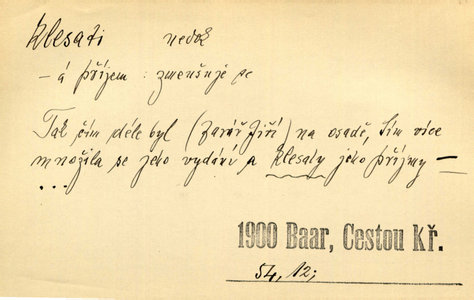 klesati nedok
– á příjem : zmenšuje se
Tak čím déle byl (farář Jiří) na osadě, tím více
množila se jeho vydání a klesaly jeho příjmy –
...
1900 Baar, Cestou Kř.
54, 12;